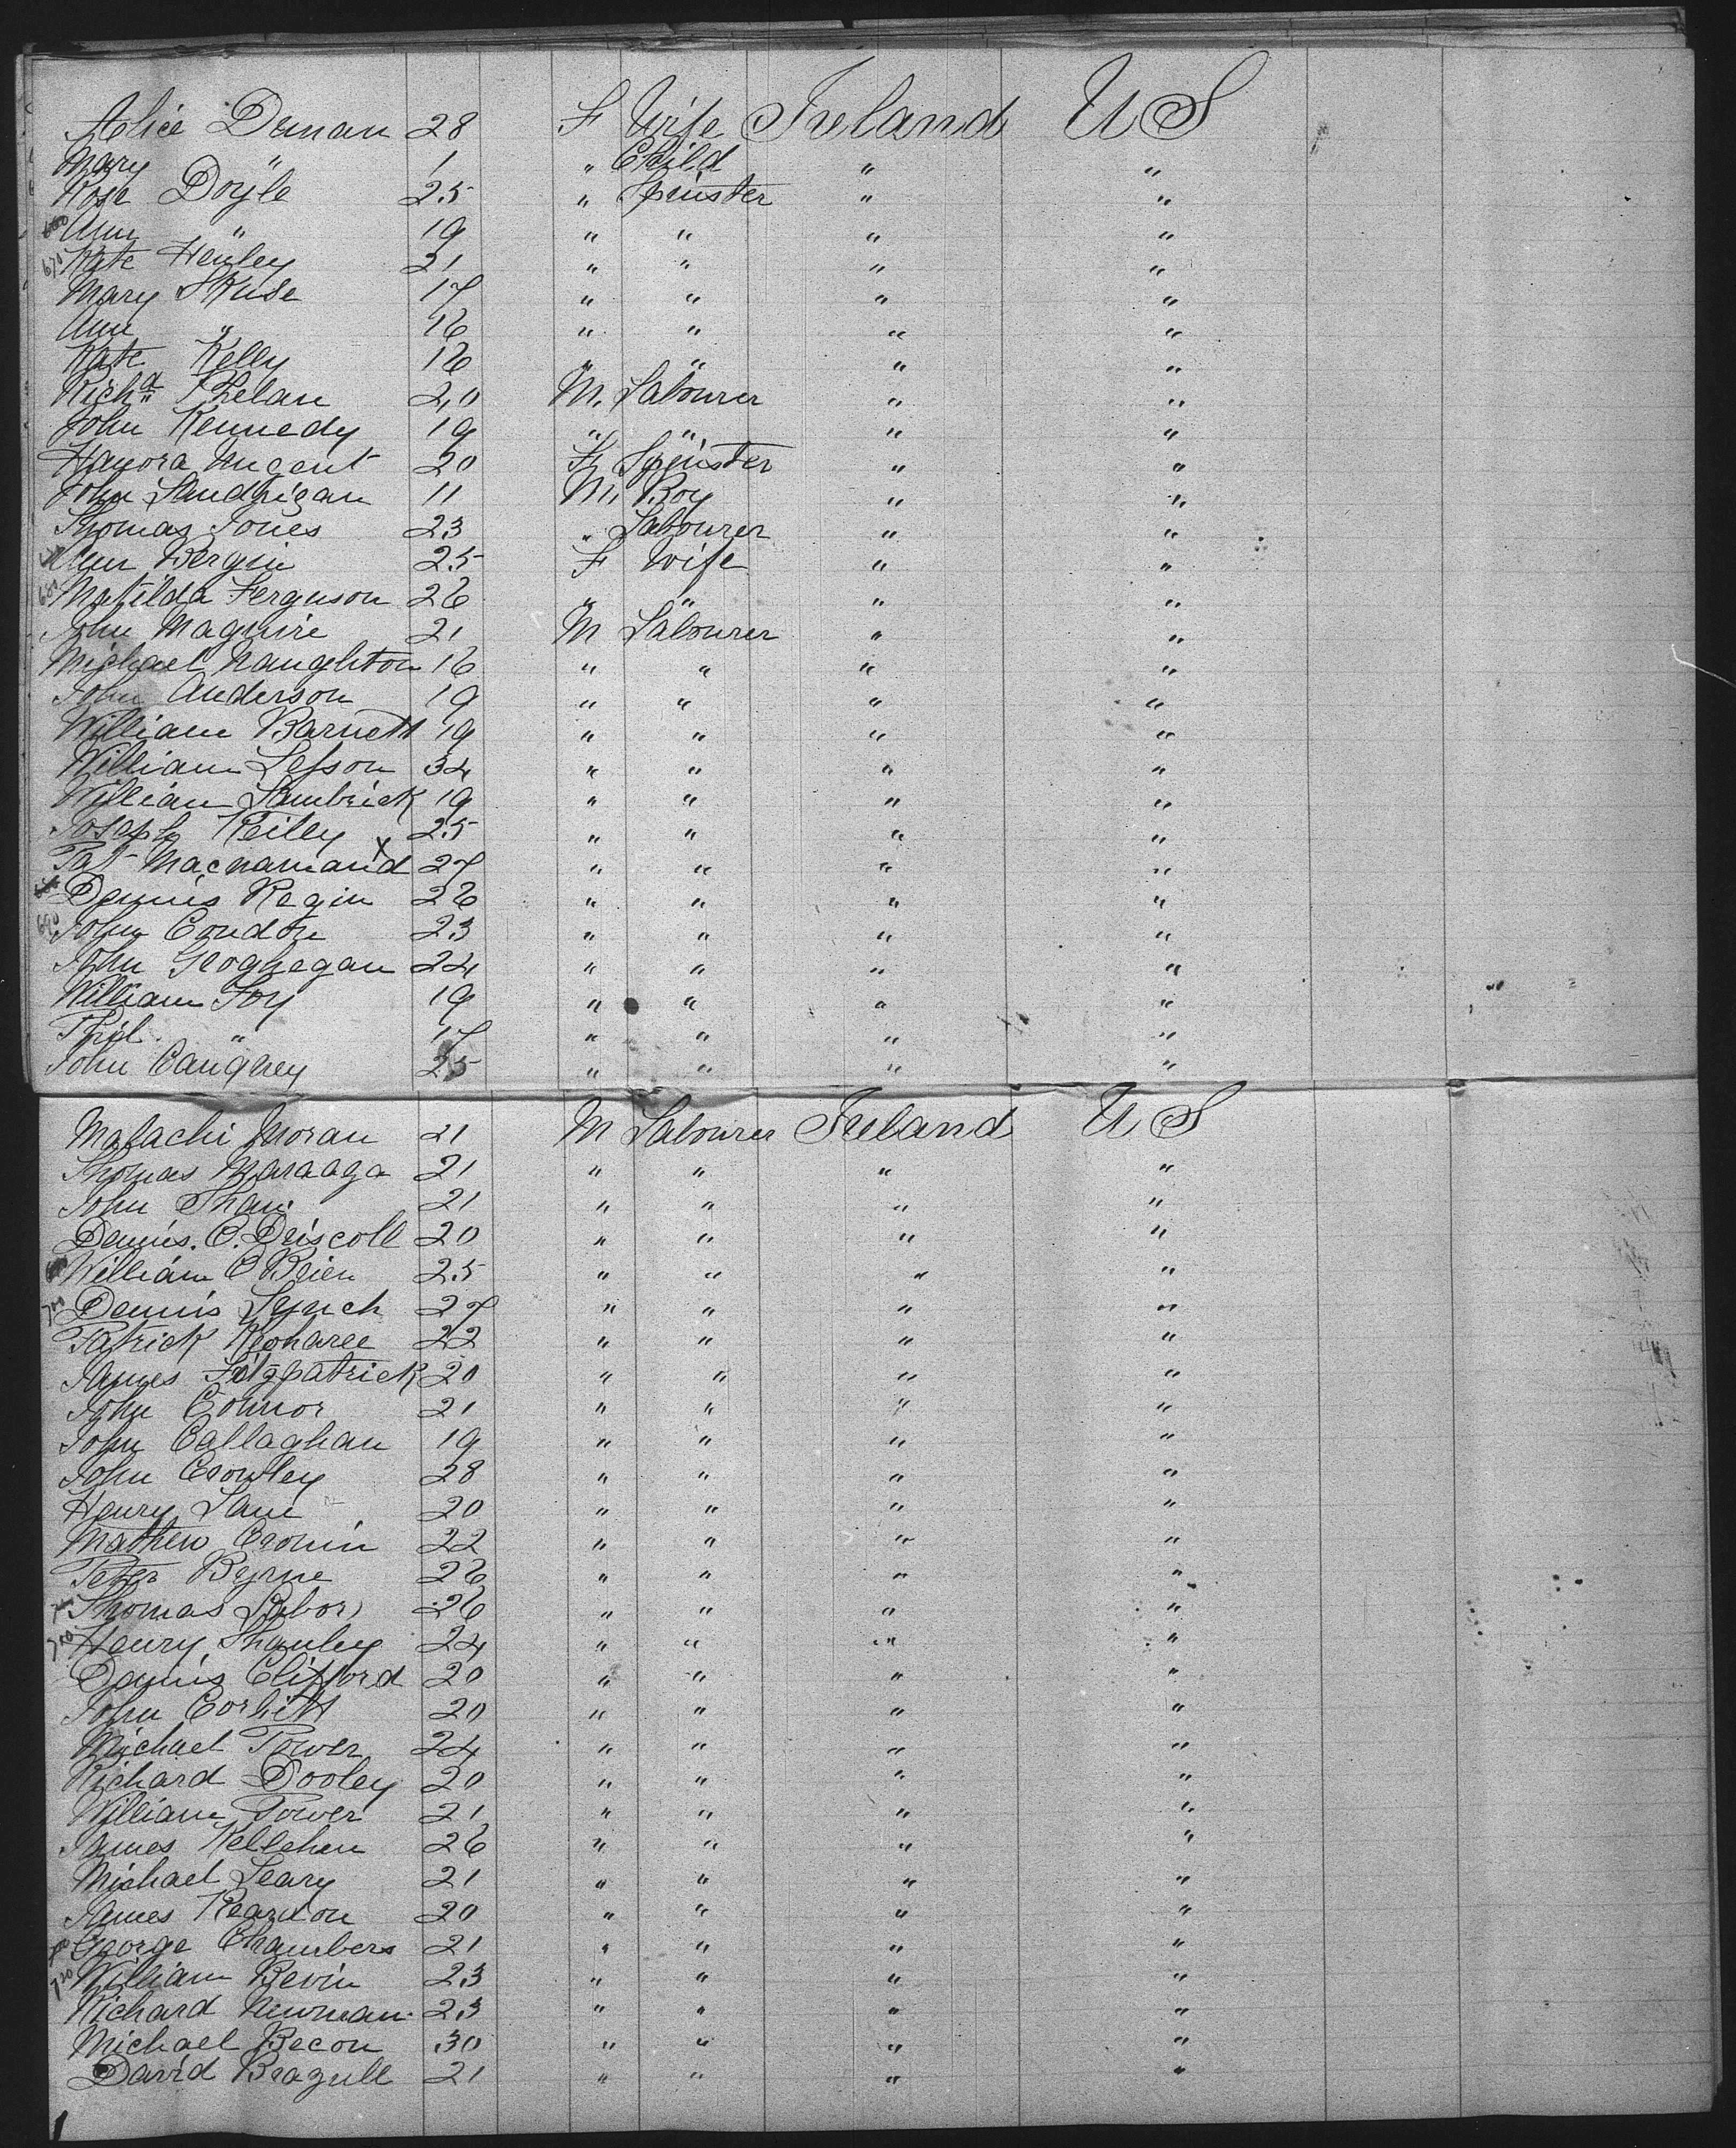 Alice Dunan 28 F Wife Ireland U S
Mary " 1 " Child " "
Rose Doyle 25 " Spinster " "
Ann " 19 " " " "
670 Kate Henley 21 " " " "
Mary Skuse 17 " " " "
Ann " 16 " " " "
Kate Kelly 16 " " " "
Richd Phelan 20 M. Labourer " "
John Kennedy 19 " " " "
Hanora Nugent 20 F. Spinster " "
John Landrigan 11 M. Boy " "
Thomas Jones 23 " Labourer " "
Ann Bergin 25 F Wife " "
680 Matilda Ferguson 26 " " " "
John Maguire 21 M Labourer " "
Michael Naughton 16 " " " "
John Anderson 19 " " " "
William Barnett 19 " " " "
William Lesson 34 " " " "
William Lambrick 19 " " " "
Joseph Reilly 25 " " " "
Pat Macnamara 27 " " " "
Dennis Regin 26 " " " "
690 John Condon 23 " " " "
John Geoghegan 24 " " " "
William Foy 19 " " " "
Phil. " 17 " " " "
John Caughey 25 " " " "
Malachi Moran 21 M Labourer Ireland U S
Thomas 21 " " " "
John Shan 21 " " " "
Dennis. O. Driscoll 20 " " " "
William O Brien 25 " " " "
700 Dennis Lynch 27 " " " "
Patrick Keoharee 22 " " " "
James Fitzpatrick 20 " " " "
John Connor 21 " " " "
John Callaghan 19 " " " "
John Crowley 28 " " " "
Henry Lane 20 " " " "
Mathew Cronin 22 " " " "
Peter Byrne 26 " " " "
Thomas 26 " " " "
710 Henry Shanley 24 " " " "
Dennis Clifford 20 " " " "
John Corbitt 20 " " " "
Michael Power 24 " " " "
Richard Dooley 20 " " " "
William Power 21 " " " "
James Kellehen 26 " " " "
Michael Leary 21 " " " "
James Reardon 20 " " " "
George Chambers 21 " " " "
720 William Bevin 23 " " " "
Richard Newman 23 " " " "
Michael Becon 30 " " " "
David Bragull 21 " " " "